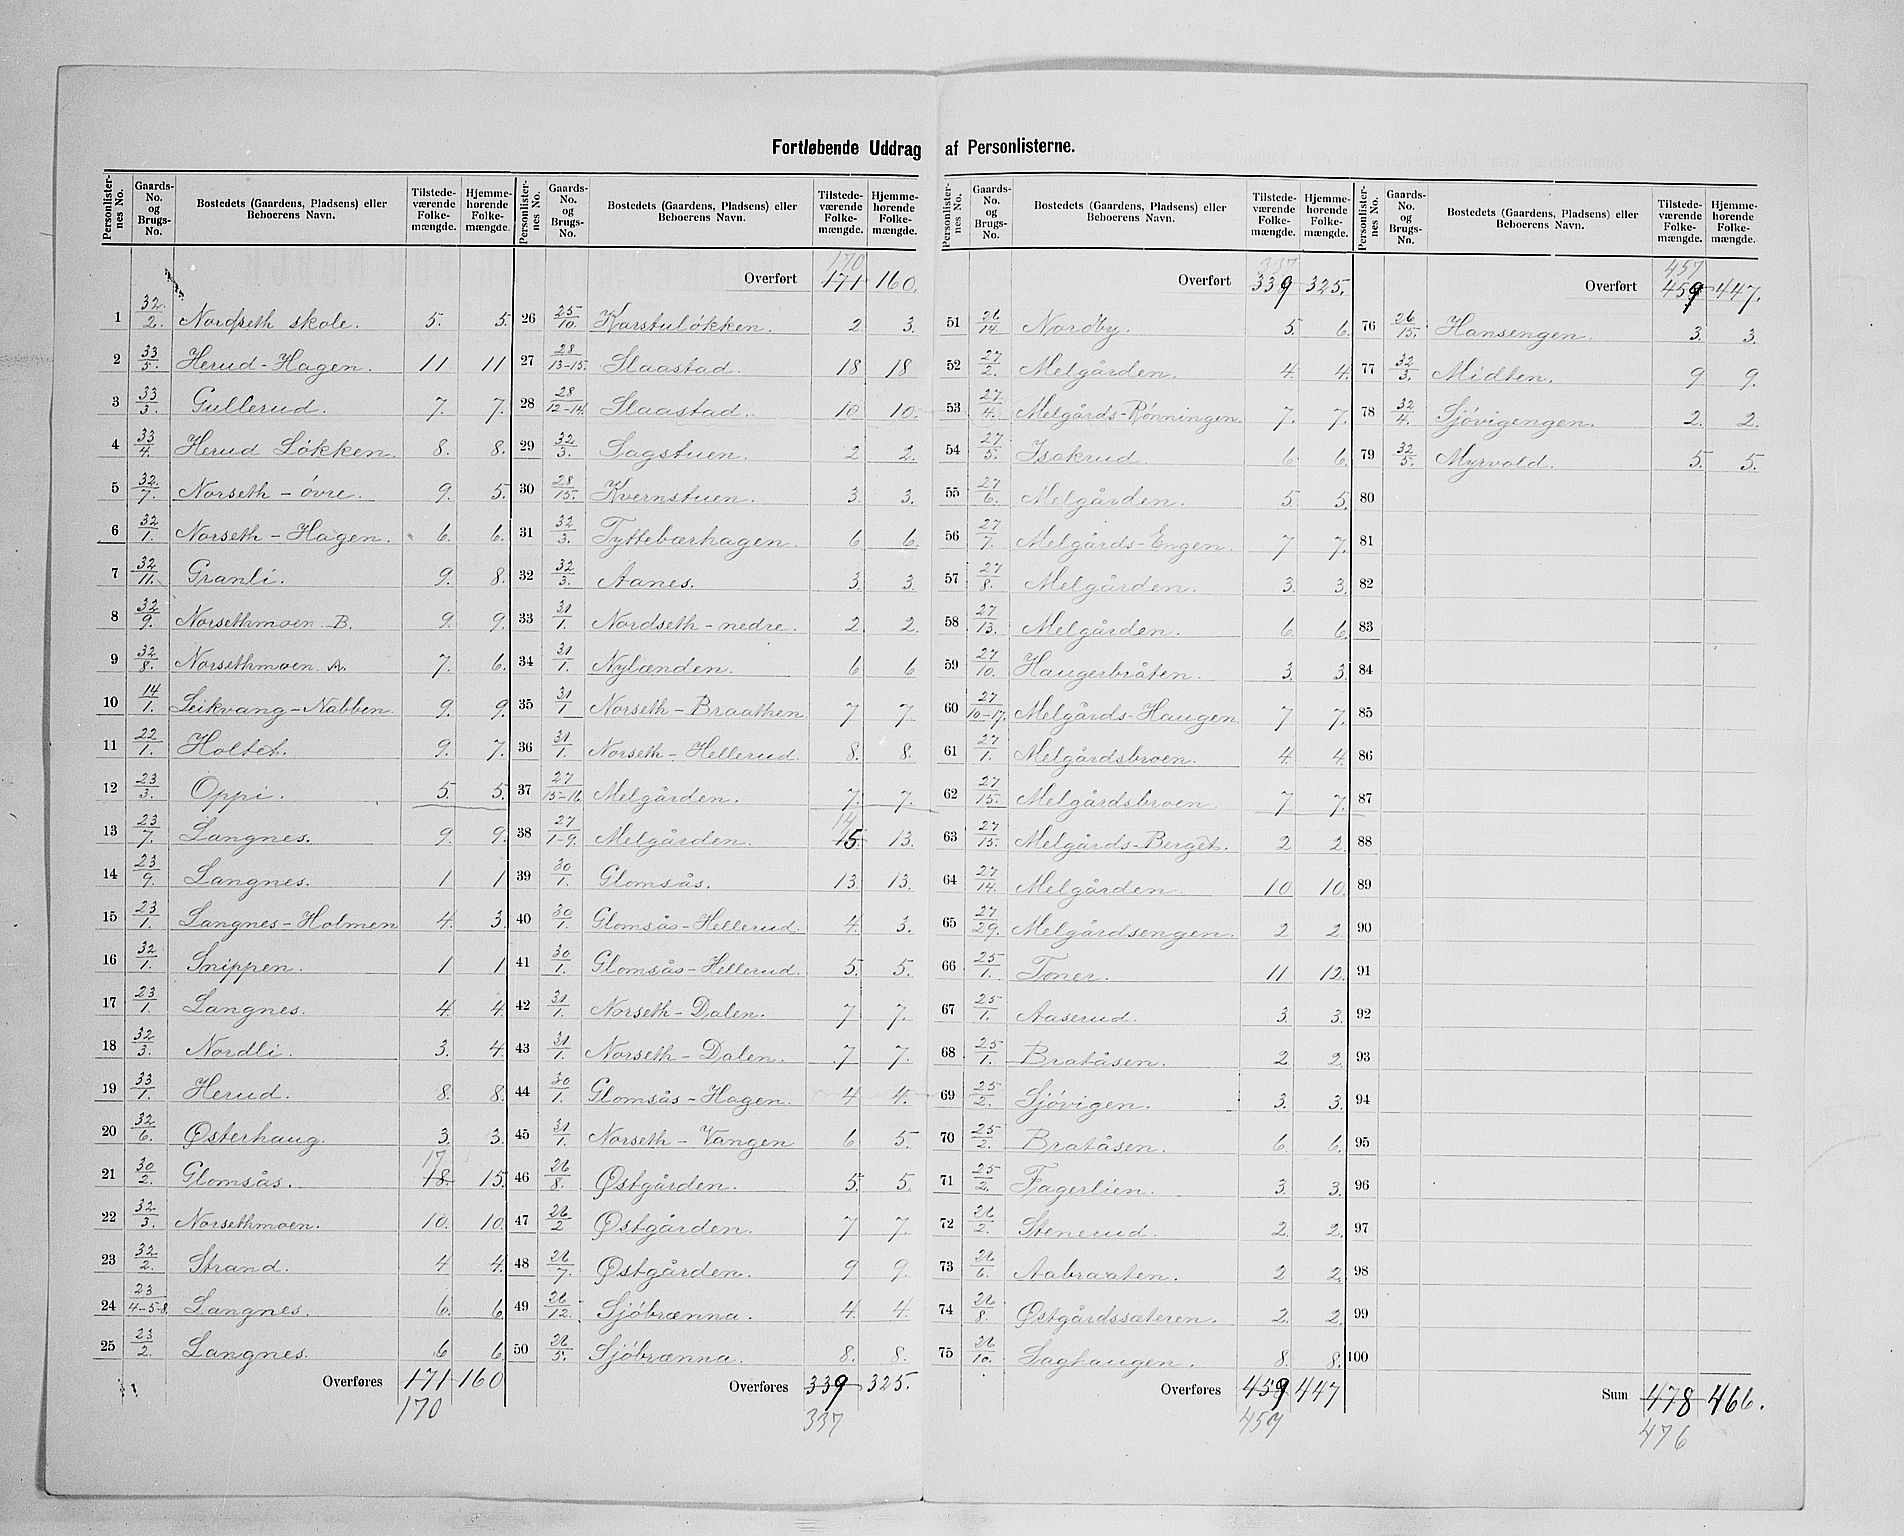 Fortløbende Uddrag af Personlisterne.
Personlister-nes No. | Gaards-No. og Brugs-No. | Bostedets (Gaardens, Pladsens) eller Beboerens Navn. | Tilstede-værende Folke-mængde. | Hjemme-hørende Folke-mængde.
1 32/2. Nordseth skole. 5. 5.
2 33/5. Herud-Hagen. 11. 11
3 33/3. Gullerud. 7. 7.
4 33/4. Herud Løkken. 8. 8.
5 32/7. Norseth - øvre. 9. 5.
6 32/1. Norseth - Hagen. 6. 6.
7 32/11. Granli. 9. 8.
8 32/9. Norsethmoen B. 9. 9.
9 32/8. Norsethmoen. A. 7. 6.
10 14/1. Leikvang-Nabben. 9. 9.
11 22/1. Holtet. 9. 7.
12 23/3. Oppi. 5. 5.
13 23/7. Langnes. 9. 9.
14 23/9. Langnes. 1 1
15 23/1. Langnes-Holmen 4. 3.
16 32/1. Snippen. 1 1
17 23/1. Langnes. 4. 4.
18 32/3. Nordli. 3. 4.
19 33/1. Herud. 8. 8.
20 32/6. Østerhaug. 3. 3.
21 30/2. Glomsås. 17 18. 15.
22 32/3. Norsethmoen. 10. 10.
23 32/2. Strand. 4 4.
24 23/4-5-8. Langnes. 6. 6
25 23/2. Langnes. 6 6
Overføres 171 160
170
Personlister-nes No. | Gaards-No. og Brugs-No. | Bostedets (Gaardens, Pladsens) eller Beboerens Navn. | Tilstede-værende Folke-mængde. | Hjemme-hørende Folke-mængde.
170
Overført 171 160.
26 25/10. Karstuløkken. 2 3.
27 28/13-15. Slaastad. 18 18
28 28/12-14. Slaastad. 10 10.
29 32/3. Sagstuen. 2 2.
30 28/15. Kvernstuen. 3. 3.
31 32/3. Tyttebærhagen. 6 6.
32 32/3. Aanes. 3. 3.
33 31/1. Nordseth - nedre. 2 2.
34 31/1. Nylænden. 6 6
35 31/1 Norseth - Braathen 7 7.
36 31/1. Norseth - Hellerud. 8. 8.
37 27/15-16. Melgården. 7. 7.
38 27/1-9. Melgården. 14 15. 13.
39 30/1. Glomsås. 13. 13.
40 30/1. Glomsås-Hellerud. 4. 3.
41 30/1. Glomsås-Hellerud. 5. 5.
42 31/1. Norseth - Dalen. 7 7.
43 31/1. Norseth - Dalen. 7 7.
44 30/1. Glomsås-Hagen. 4 4.
45 31/1. Norseth - Vangen 6 5.
46 26/8. Østgården. 5. 5.
47 26/2 Østgården. 7 7.
48 26/7. Østgården. 9 9.
49 26/12. Sjøbrænna. 4. 4.
50 26/5. Sjøbrænna. 8. 8.
Overføres 339 325.
337
Personlister-nes No. | Gaards-No. og Brugs-No. | Bostedets (Gaardens, Pladsens) eller Beboerens Navn. | Tilstede-værende Folke-mængde. | Hjemme-hørende Folke-mængde.
337
Overført 339 325.
51 26/14. Nordby. 5 6.
52 27/2. Melgården. 4. 4.
53 27/4. Melgårds-Rønningen. 7. 7.
54 27/5. Isakrud. 6 6.
55 27/6. Melgården. 5 5.
56 27/7. Melgårds-Engen. 7 7.
57 27/8. Melgården. 3. 3.
58 27/13. Melgården. 6. 6.
59 27/10. Haugerbråten. 3. 3.
60 27/10-17. Melgårds-Haugen. 7 7.
61 27/1. Melgårdsbroen. 4 4.
62 27/15. Melgårdsbroen. 7 7.
63 27/15. Melgårds-Berget. 2 2.
64 27/14. Melgården. 10 10.
65 27/29. Melgårdsengen. 2 2.
66 25/1. Toner. 11 12.
67 25/1. Aaserud. 3. 3.
68 25/1. Bratåsen. 2 2.
69 25/2. Sjøvigen. 3. 3.
70 25/2. Bratåsen. 6 6.
71 25/2. Fagerlien. 3. 3.
72 26/2. Stenerud. 2. 2.
73 26/6. Aabraaten. 2 2.
74 26/8. Østgårdssæteren. 2. 2.
75 26/10. Saghaugen. 8. 8.
Overføres 459 447
459
Personlister-nes No. | Gaards-No. og Brugs-No. | Bostedets (Gaardens, Pladsens) eller Beboerens Navn. | Tilstede-værende Folke-mængde. | Hjemme-hørende Folke-mængde.
457
Overført 459 447.
76 26/15. Hansengen. 3. 3.
77 32/3. Midten. 9 9.
78 32/4. Sjøvigengen. 2. 2.
79 32/5. Myrvold. 5. 5.
80
81
82
83
84
85
86
87
88
89
90
91
92
93
94
95
96
97
98
99
100
Sum 478 466.
476